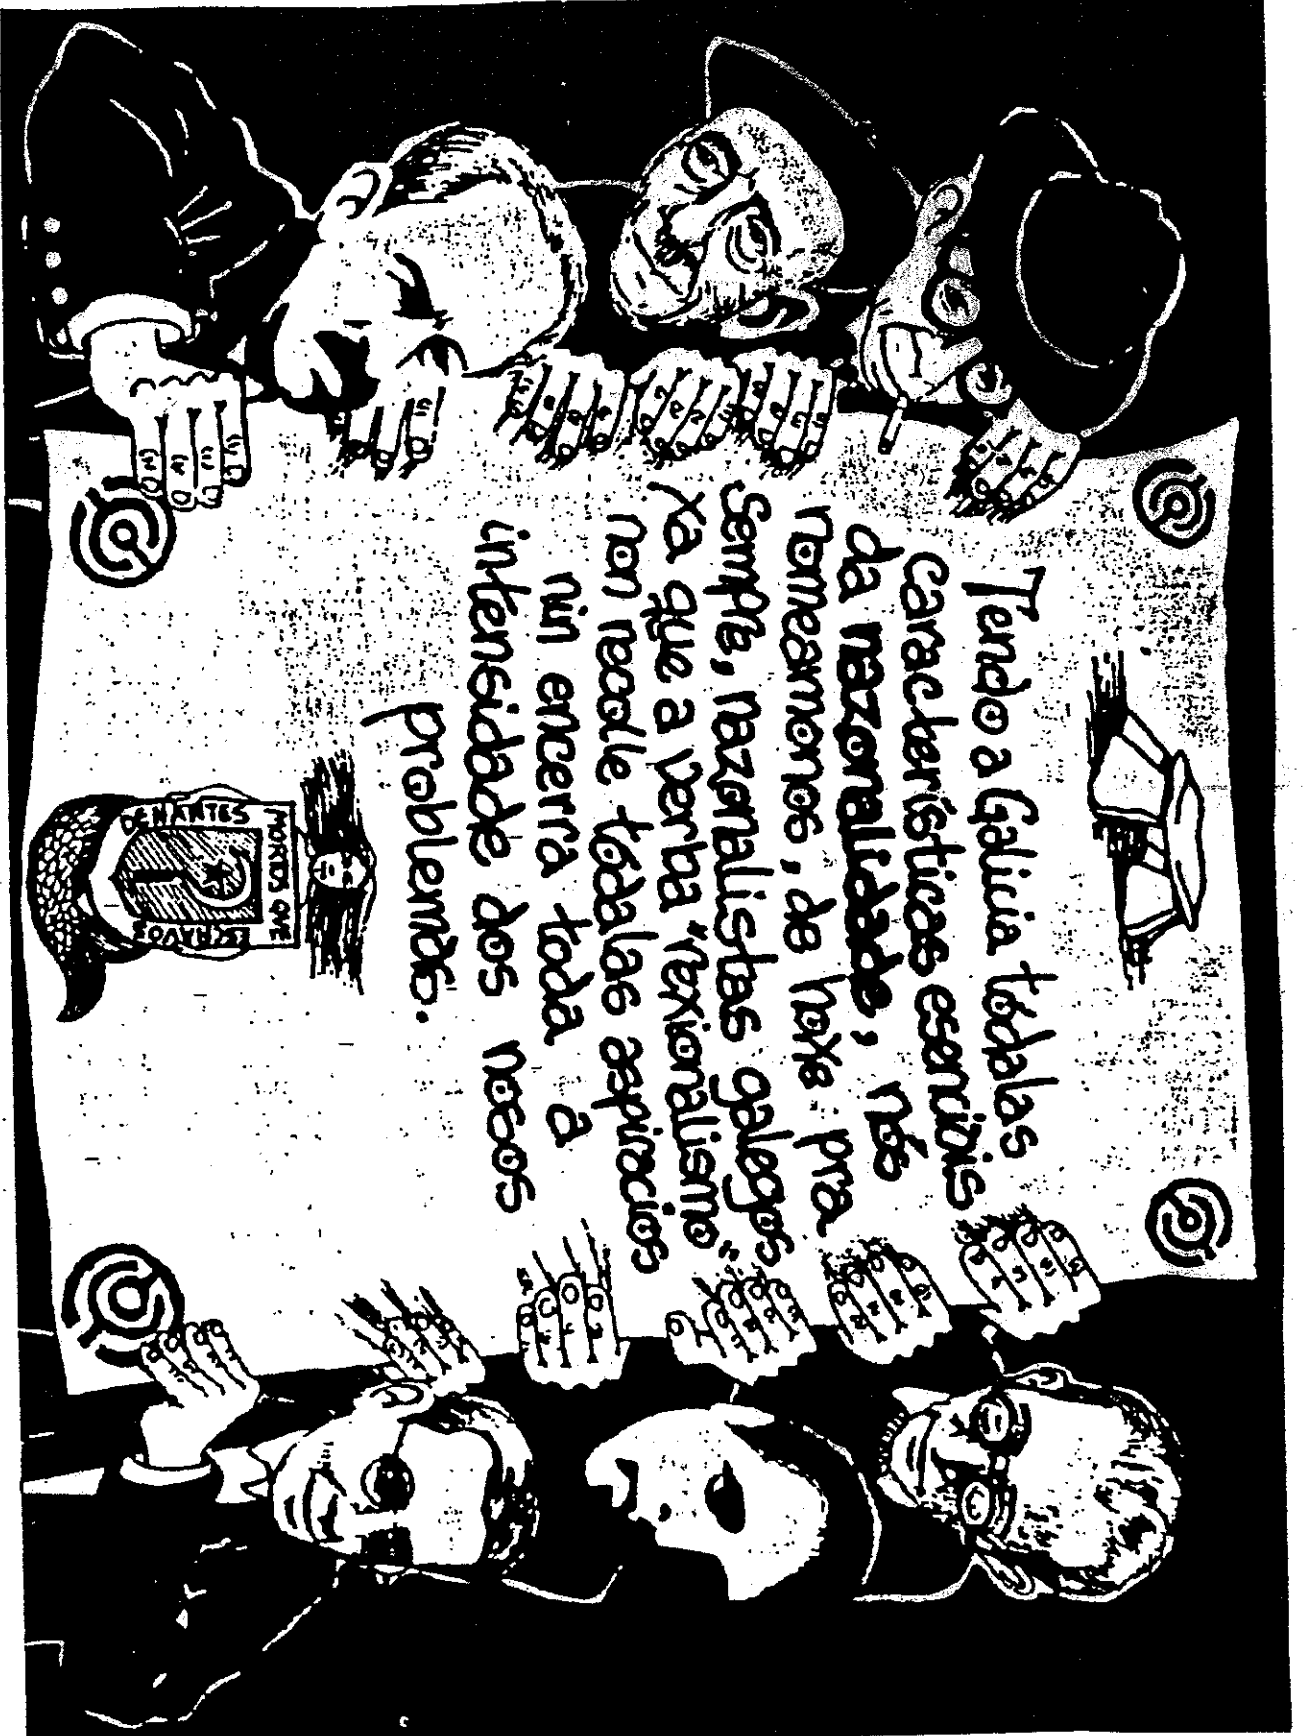 Tendo a Galicia tódalas
características esenciais
da nazonalidade, nós
nomeámonos, de hoxe pra
sempre, nazonalistas galegos
xa que a verba "rexionalismo"
non recolle tódalas aspiracios
nin encerra toda a
intensidade dos nosos
problemas.
DENANTES
MORTOS QUE
ESCRAVOS